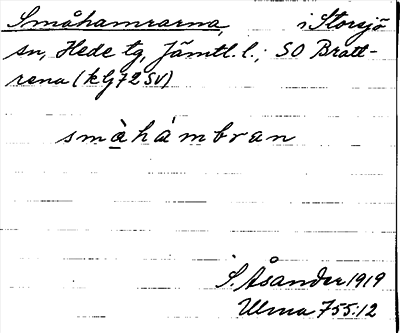 Småhamrarna, i Storsjö
sn, Hede tg, Jämtl. l.; SO Bratt-
rena (kbl 72 SV)
småhàmbran
S. Åsander 1919
Ulma 755:12